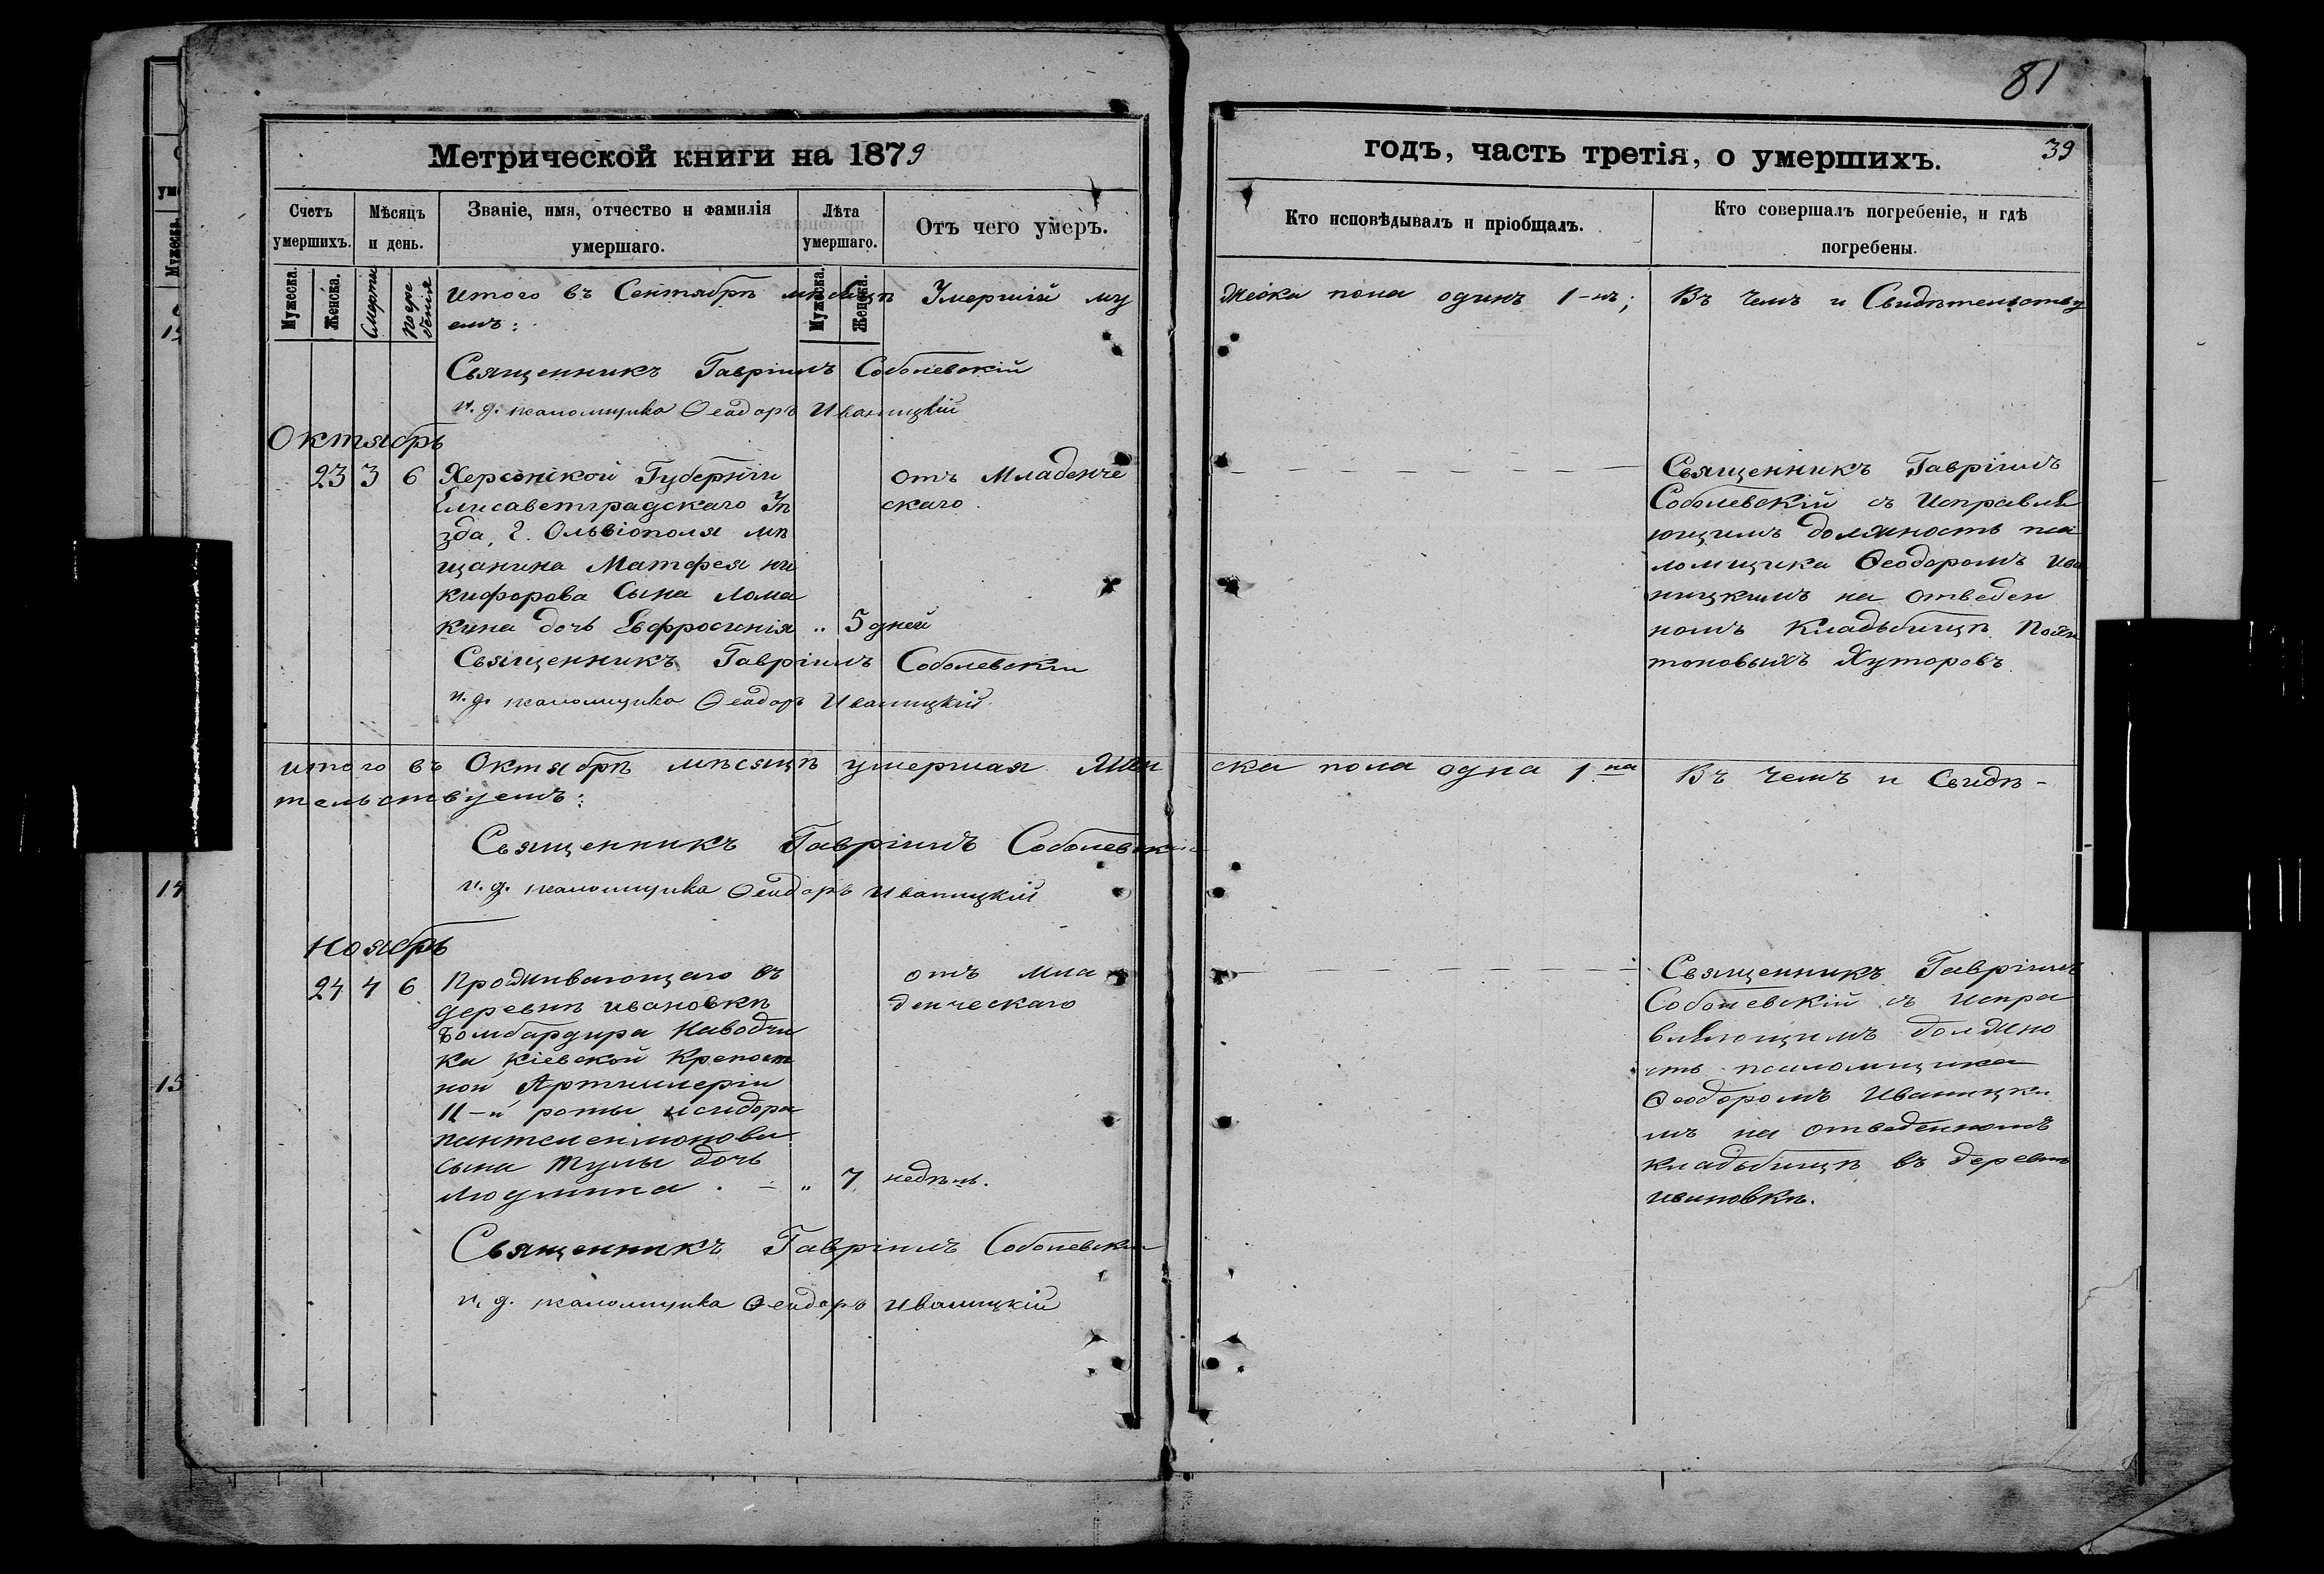 81
Метрической книги на 1879
годъ, часть третія, о умершихъ.
39
Счетъ умершихъ.
Мѣсяцъ и день.
Званіе, имя, отчество и фамилія умершаго.
Лѣта умершаго.
Отъ чего умеръ.
Кто исповѣдывалъ и пріобщалъ.
Кто совершалъ погребеніе, и гдѣ погребены.
Мужеска.
Женска.
Смерти
Погре
бенія
Мужеска.
Женска.
Итого въ Сентябрѣ мѣсяцѣ Умершій му
жеска пола одинъ 1-нъ; Въ чемъ и Свидѣтельству
емъ:
Священникъ Гавріилъ Соболевскій
и. д. псаломщика Ѳеодоръ Иваницкій
Октябрь
23 3 6
Херсонской Губерніи
Елисаветградскаго Уѣ
зда, г. Ольвіополя мѣ
щанина Матфея Ни
кифорова Сына Лома
кина дочь Евфросинія „ 5 дней
отъ Младенче
скаго.
Священникъ Гавріилъ
Соболевскій съ Исправля
ющимъ должность пса
ломщика Ѳеодоромъ Ива
ницкимъ на отведен
номъ Кладбищѣ
Хуторовъ.
Священникъ Гавріилъ Соболевскій
и. д. псаломщика Ѳеодоръ Иваницкій
итого въ Октябрѣ мѣсяцѣ умершая Жен
ска пола одна 1-на Въ чемъ и Свидѣ-
тельствуемъ:
Священникъ Гавріилъ Соболевскій
и. д. псаломщика Ѳеодоръ Иваницкій
Ноябрь
24 4 6
Проживающаго въ
деревнѣ Ивановкѣ
Бомбардира Наводчи
ка Кіевской Крепост
ной Артиллеріи
11-й роты Исидора
Пантелеимонова
сына Тулы дочь
Людмила. - „ 7 недѣль.
отъ мла
денческаго
Священникъ Гавріилъ
Соболевскій съ Испра
вляющимъ должно
сть псаломщика
Ѳеодоромъ Иваницки
мъ на отведенномъ
кладбищѣ въ деревнѣ
Ивановкѣ.
Священникъ Гавріилъ Соболевскій
и. д. псаломщика Ѳеодоръ Иваницкій